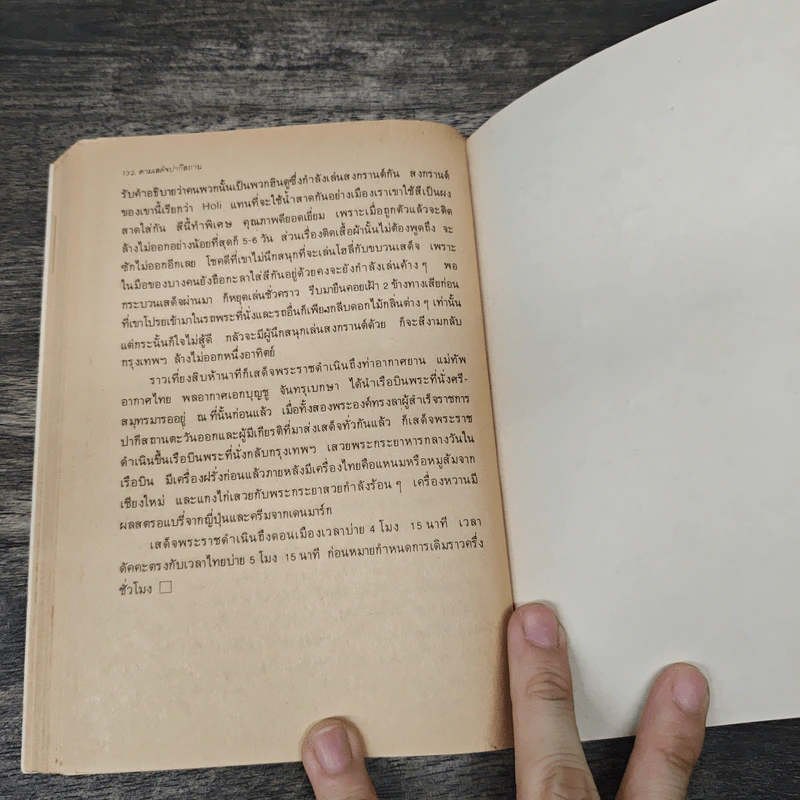 132. ตามเสด็จปากีสถาน
รับคำอธิบายว่าคนพวกนั้นเป็นพวกฮินดูซึ่งกำลังเล่นสงกรานต์กัน สงกรานต์
ของเขานี้เรียกว่า Holi แทนที่จะใช้น้ำสาดกันอย่างเมืองเราเขาใช้สีเป็นผง
สาดใส่กัน สีนี้ทำพิเศษ คุณภาพดียอดเยี่ยม เพราะเมื่อถูกตัวแล้วจะติด
ล้างไม่ออกอย่างน้อยที่สุดก็ 5-6 วัน ส่วนเรื่องติดเสื้อผ้านั้นไม่ต้องพูดถึง จะ
ซักไม่ออกอีกเลย โชคดีที่เขาไม่นึกสนุกที่จะเล่นโฮลี่กับขบวนเสด็จ เพราะ
ในมือของบางคนยังถือกะลาใส่สีกันอยู่ด้วยคงจะยังกำลังเล่นค้าง ๆ พอ
กระบวนเสด็จผ่านมา ก็หยุดเล่นชั่วคราว รีบมายืนคอยเฝ้า 2 ข้างทางเสียก่อน
ที่เขาโปรยเข้ามาในรถพระที่นั่งและรถอื่นก็เพียงกลีบดอกไม้กลิ่นต่าง ๆ เท่านั้น
แต่กระนั้นก็ใจไม่สู้ดี กลัวจะมีผู้นึกสนุกเล่นสงกรานต์ด้วย ก็จะสีงามกลับ
กรุงเทพฯ ล้างไม่ออกหนึ่งอาทิตย์
ราวเที่ยงสิบห้านาทีก็เสด็จพระราชดำเนินถึงท่าอากาศยาน แม่ทัพ
อากาศไทย พลอากาศเอกบุญชู จันทรุเบกษา ได้นำเรือบินพระที่นั่งศรี-
สมุทรมารออยู่ ณ ที่นั้นก่อนแล้ว เมื่อทั้งสองพระองค์ทรงลาผู้สำเร็จราชการ
ปากีสถานตะวันออกและผู้มีเกียรติที่มาส่งเสด็จทั่วกันแล้ว ก็เสด็จพระราช
ดำเนินขึ้นเรือบินพระที่นั่งกลับกรุงเทพฯ เสวยพระกระยาหารกลางวันใน
เรือบิน มีเครื่องฝรั่งก่อนแล้วภายหลังมีเครื่องไทยคือแหนมหรือหมูส้มจาก
เชียงใหม่ และแกงไก่เสวยกับพระกระยาสวยกำลังร้อน ๆ เครื่องหวานมี
ผลสตรอแบรี่จากญี่ปุ่นและครีมจากเดนมาร์ก
เสด็จพระราชดำเนินถึงดอนเมืองเวลาบ่าย 4 โมง 15 นาที เวลา
ดัคคะตรงกับเวลาไทยบ่าย 5 โมง 15 นาที ก่อนหมายกำหนดการเดิมราวครึ่ง
ชั่วโมง □